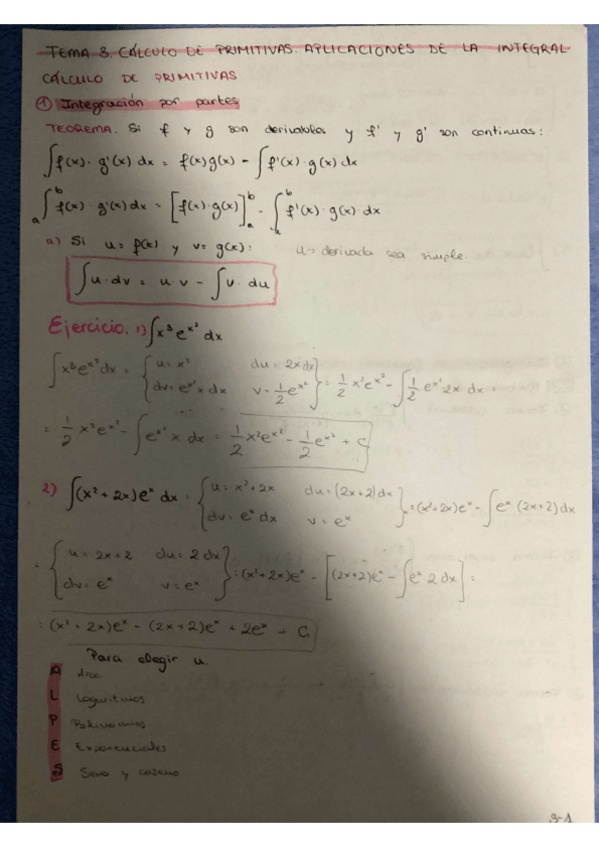 TEMA 3. CÁLCULO DE PRIMITIVAS. APLICACIONES DE LA INTEGRAL
CÁLCULO DE PRIMITIVAS
① Integración por partes
TEOREMA. Si f y g son derivables y f' y g' son continuas:
∫f(x)·g'(x) dx = f(x)g(x) - ∫f'(x)·g(x) dx
∫ₐᵇ f(x)·g'(x) dx = [f(x)·g(x)]ₐᵇ - ∫ₐᵇ f'(x)·g(x) dx
a) Si u = f(x) y v = g(x): u → derivada sea simple.
∫u·dv = u·v - ∫v·du
Ejercicio. 1) ∫x³e^x² dx
∫x³e^x² dx = {u = x² du = 2x dx; dv = e^x² x dx v = 1/2 e^x²} = 1/2 x²e^x² - ∫1/2 e^x² 2x dx =
= 1/2 x²e^x² - ∫e^x² x dx = 1/2 x²e^x² - 1/2 e^x² + C
2) ∫(x² + 2x)e^x dx = {u = x² + 2x du = (2x + 2)dx; dv = e^x dx v = e^x} = (x² + 2x)e^x - ∫e^x (2x + 2)dx
= {u = 2x + 2 du = 2 dx; dv = e^x v = e^x} = (x² + 2x)e^x - [(2x + 2)e^x - ∫e^x 2 dx] =
= (x² + 2x)e^x - (2x + 2)e^x + 2e^x + C
Para elegir u.
A Arco
L Logaritmos
P Polinomios
E Exponenciales
S Seno y coseno
3-1